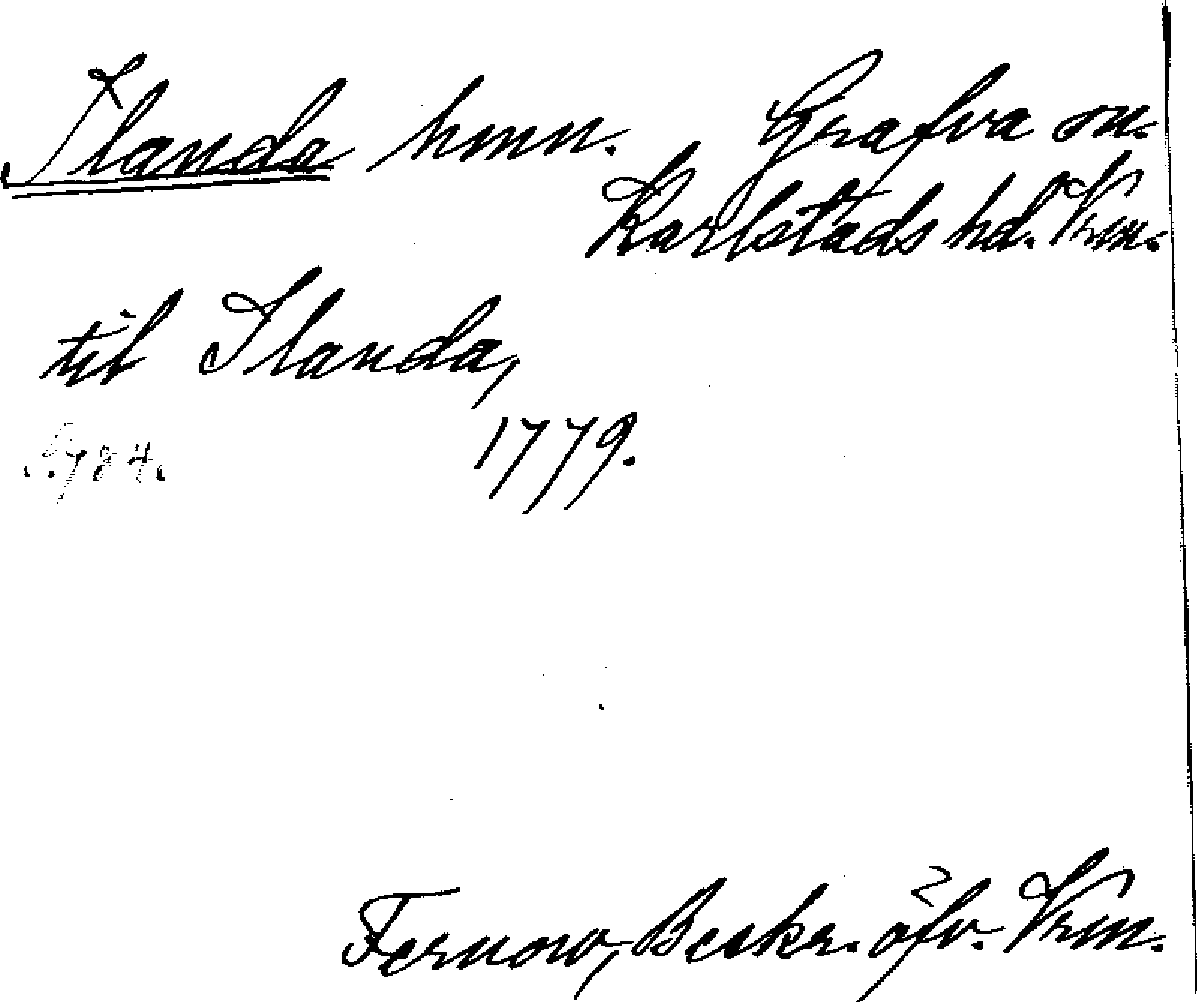 Ilanda hmn. Grafva sn.
Karlstads hd. Vrm.
til Ilanda,
1779.
S. 784.
Fernow, Beskr. öfv. Vrm.